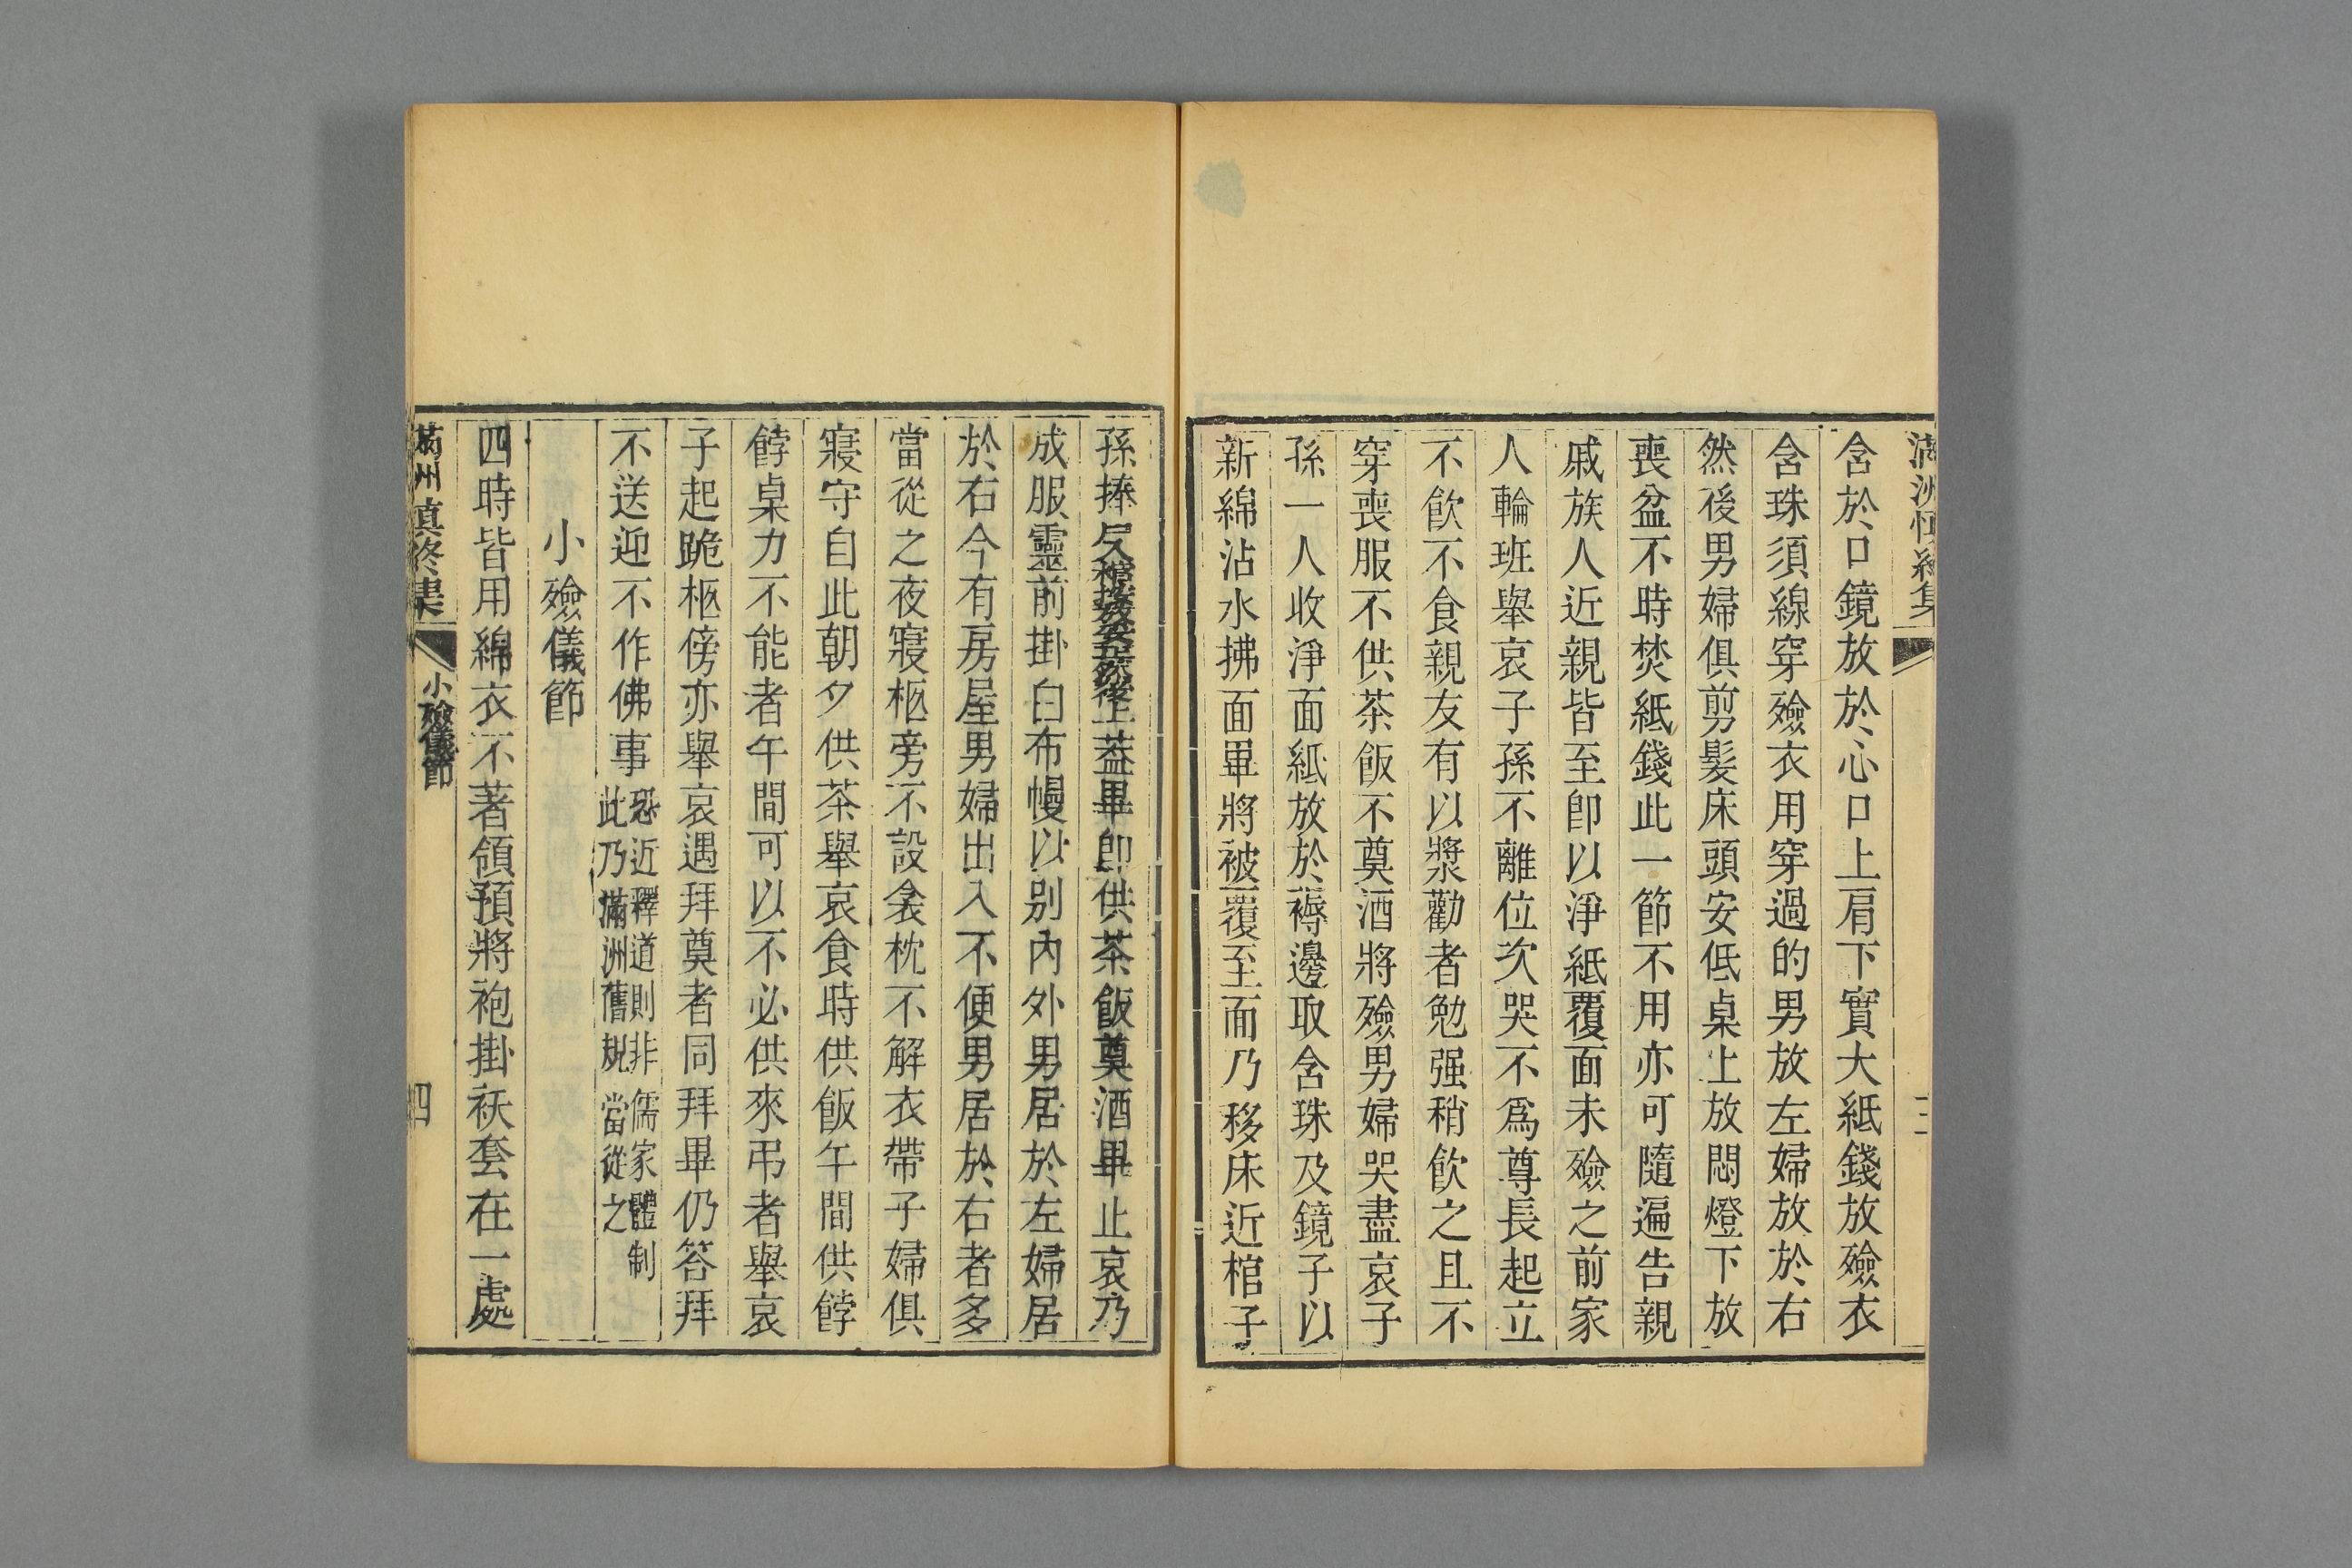 滿洲慎終集
三
含於口鏡放於心口上肩下實大紙錢放殮衣
含珠須線穿殮衣用穿過的男放左婦放於右
然後男婦俱剪髮床頭安低桌上放悶燈下放
喪盆不時焚紙錢此一節不用亦可隨遍告親
戚族人近親皆至卽以淨紙覆面未殮之前家
人輪班舉哀子孫不離位次哭不爲尊長起立
不飮不食親友有以漿勸者勉强稍飮之且不
穿喪服不供茶飯不奠酒將殮男婦哭盡哀子
孫一人收淨面紙放於褥邊取含珠及鏡子以
新綿沾水拂面畢將被覆至面乃移床近棺子
孫捧尸入棺接放安妥然後上葢畢卽供茶飯奠酒畢止哀乃
成服靈前掛白布幔以別內外男居於左婦居
於右今有房屋男婦出入不便男居於右者多
當從之夜寢柩旁不設衾枕不解衣帶子婦俱
寢守自此朝夕供茶舉哀食時供飯午間供餑
餑桌力不能者午間可以不必供來弔者舉哀
子起跪柩傍亦舉哀遇拜奠者同拜畢仍答拜
不送迎不作佛事恐近釋道則非儒家體制
此乃滿洲舊規當從之
小殮儀節
四時皆用綿衣不著領預將袍掛袄套在一處
滿州慎終集
小殮儀節
四